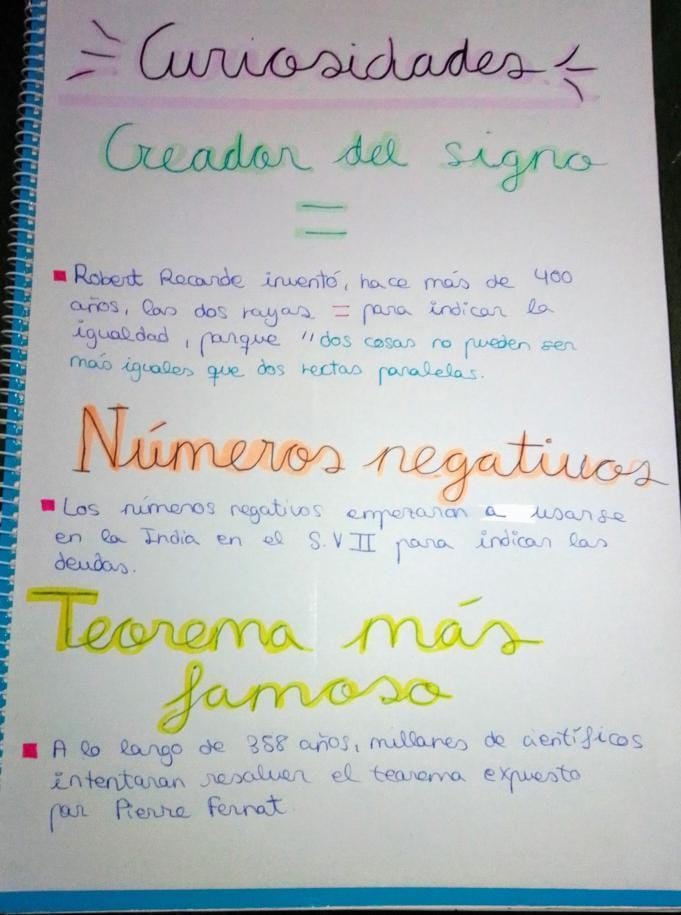 Curiosidades
Creador del signo
=
Robert Recorde inventó, hace más de 400
años, las dos rayas = para indicar la
igualdad, porque "dos cosas no pueden ser
más iguales que dos rectas paralelas.
Números negativos
Los números negativos empezaron a usarse
en la India en el S.VII para indicar las
deudas.
Teorema más
famoso
A lo largo de 358 años, millones de científicos
intentaron resolver el teorema expuesto
por Pierre Fernat.